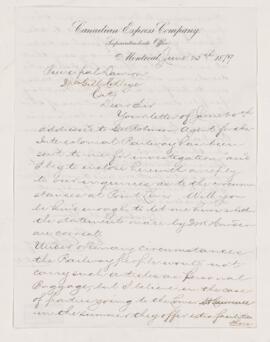 Canadian Express Company,
Superintendent's Office
Montreal, June 25th 1879
Principal Dawson
McGill College
City
Dear Sir
Your letter of June 20th
addressed to Geo. Robinson Agent for the
Intercolonial Railway has been
sent to me for investigation and
I beg to enclose herewith a reply
to our inquiries as to the
Will you
be kind enough to let me know if
the statements made by
are correct.
Under ordinary circumstances
the Railway people would not
carry such articles as Personal
Baggage, but I believe in the case
of parties going to the Lower St Lawrence
in the summer they offer extra facilities